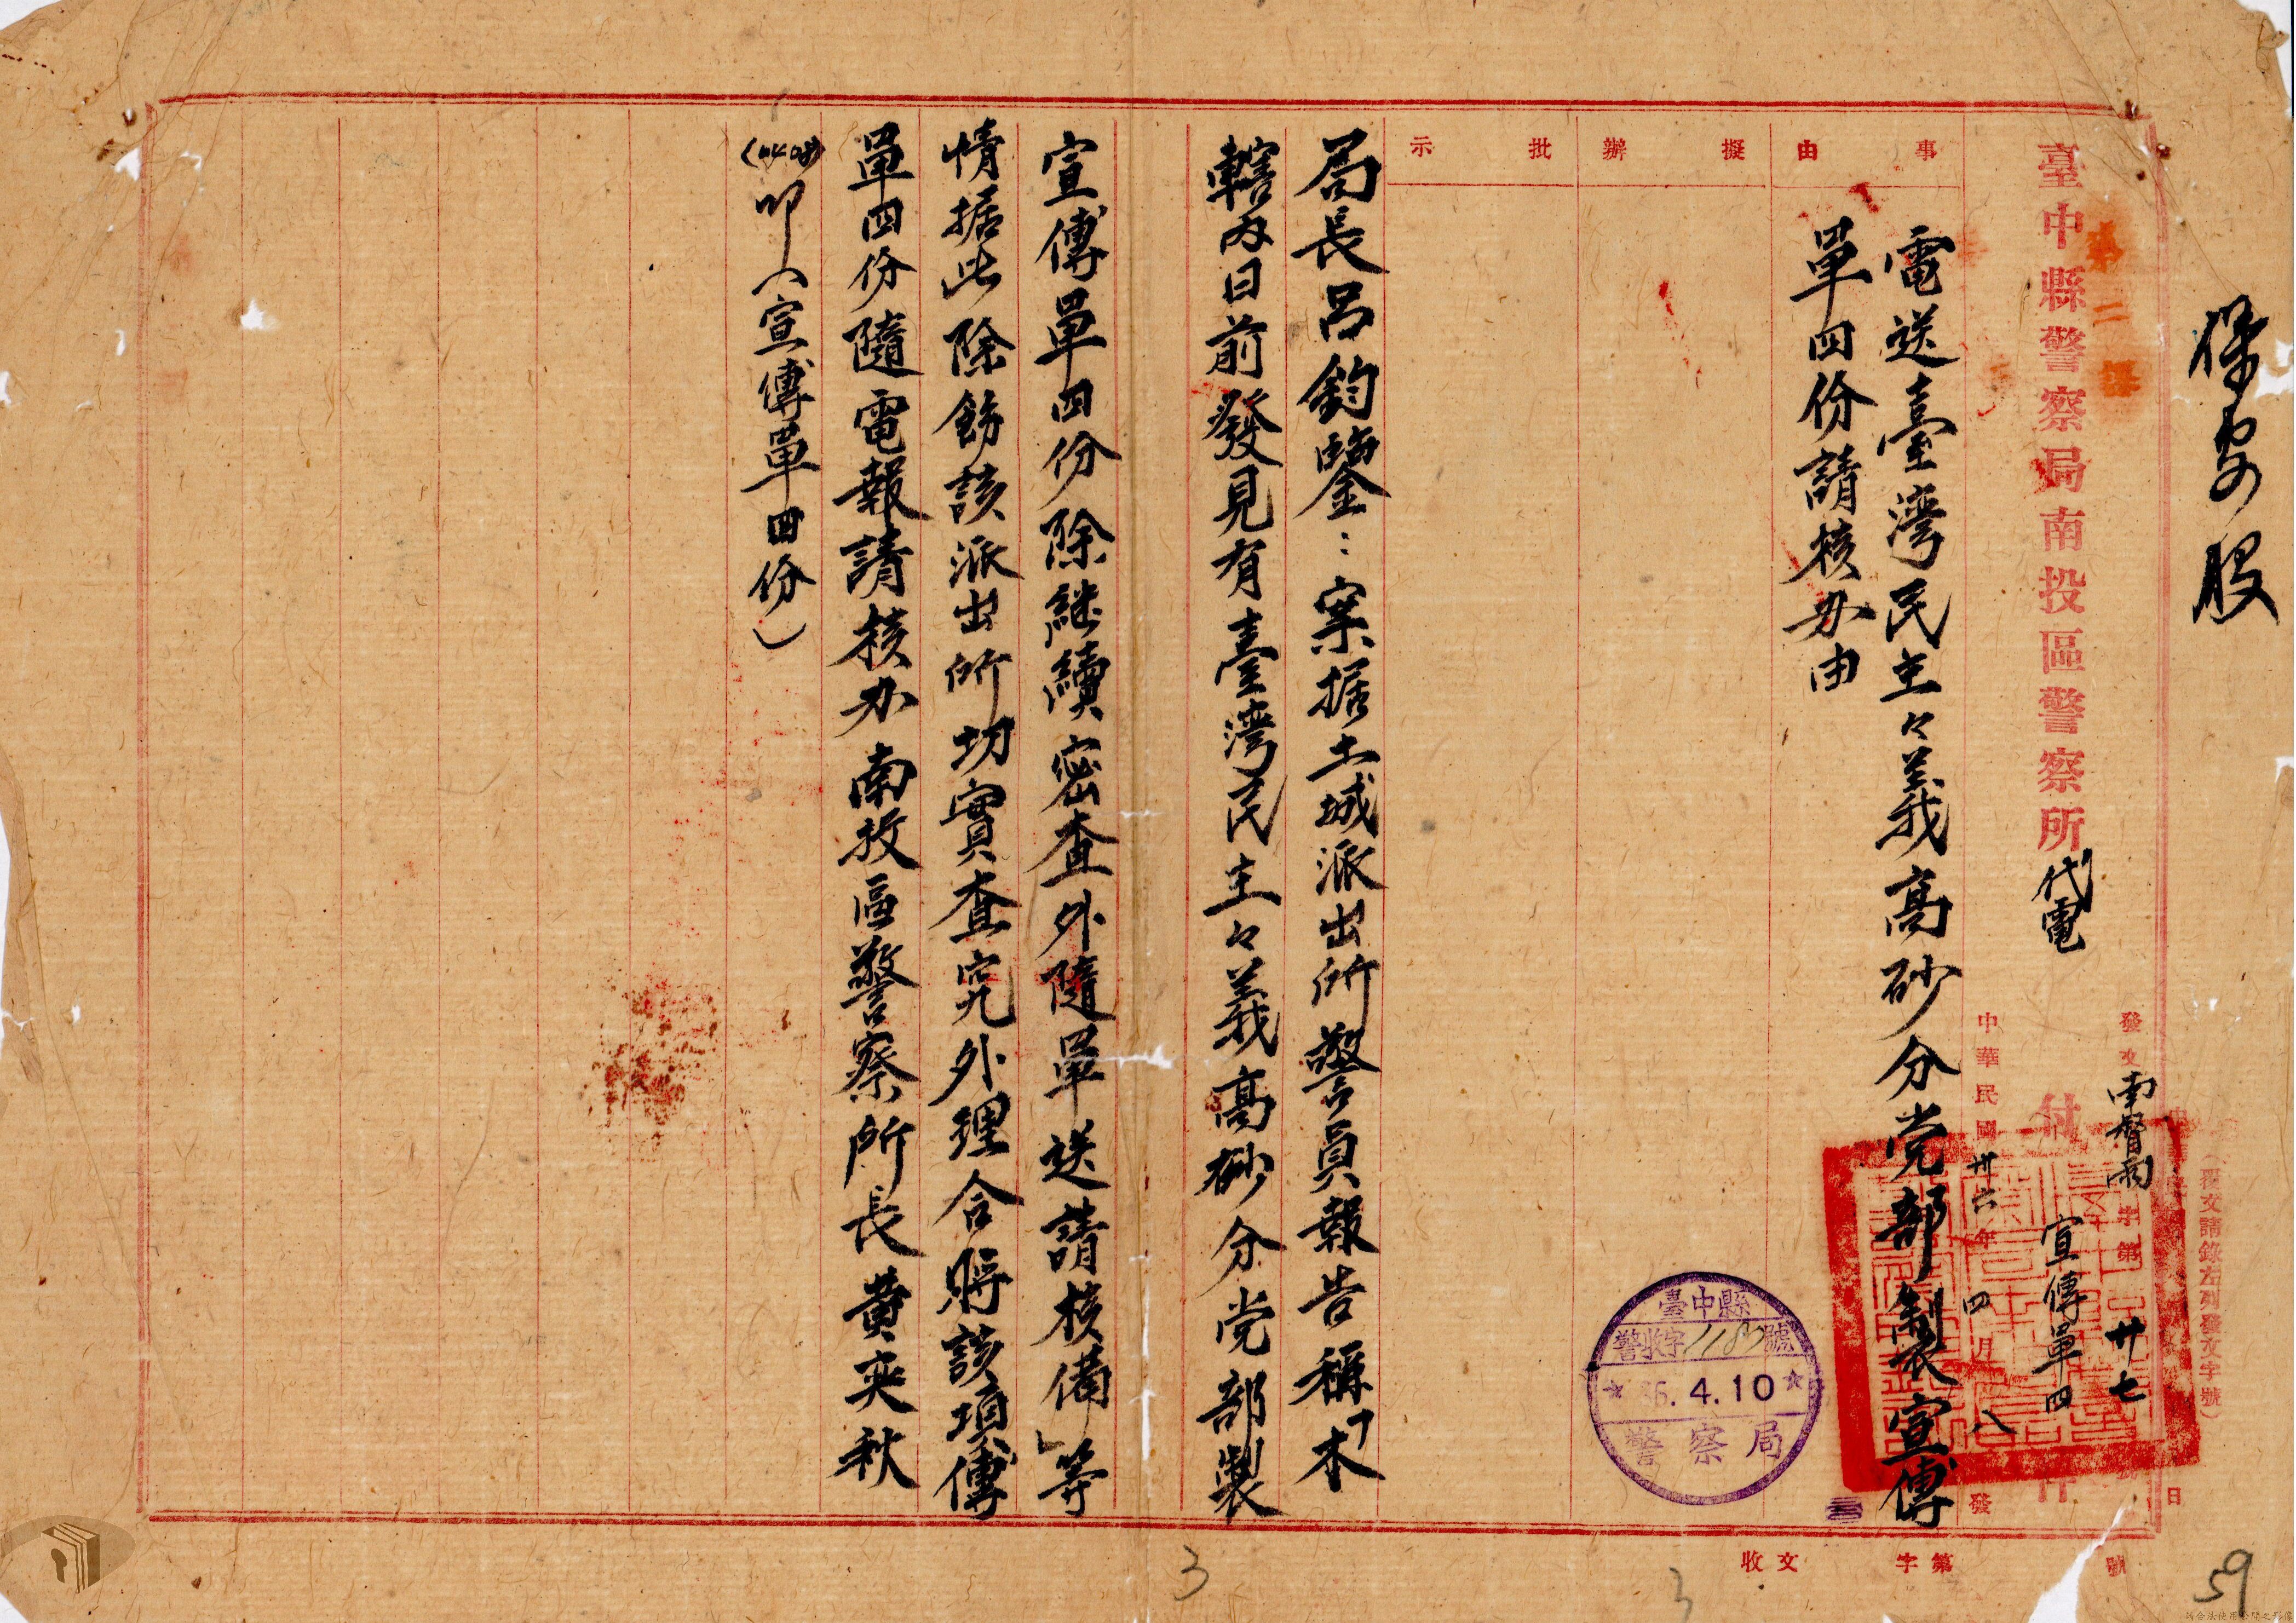 保安股
第二課
(覆文請錄左列發文字號)
發文南督雨字第卅七號
臺中縣警察局南投區警察所代電
付
宣傳單四
件
中華民國卅六年四月八日發
事由
電送臺灣民主々義高砂分党部製宣傳
單四份請核办由
擬辦
批示
局長呂鈞鑒：案据土城派出所警員報告稱「本
轄內日前發見有臺灣民主々義高砂分党部製
宣傳單四份除継續密查外隨單送請核備」等
情据此除飭該派出所切實查究外理合將該項傳
單四份隨電報請核办南投區警察所長黄奕秋
(0408)叩(宣傳單四份)
臺中縣
警收字1187號
36.4.10
警察局
收文 字第 號
3
3
59